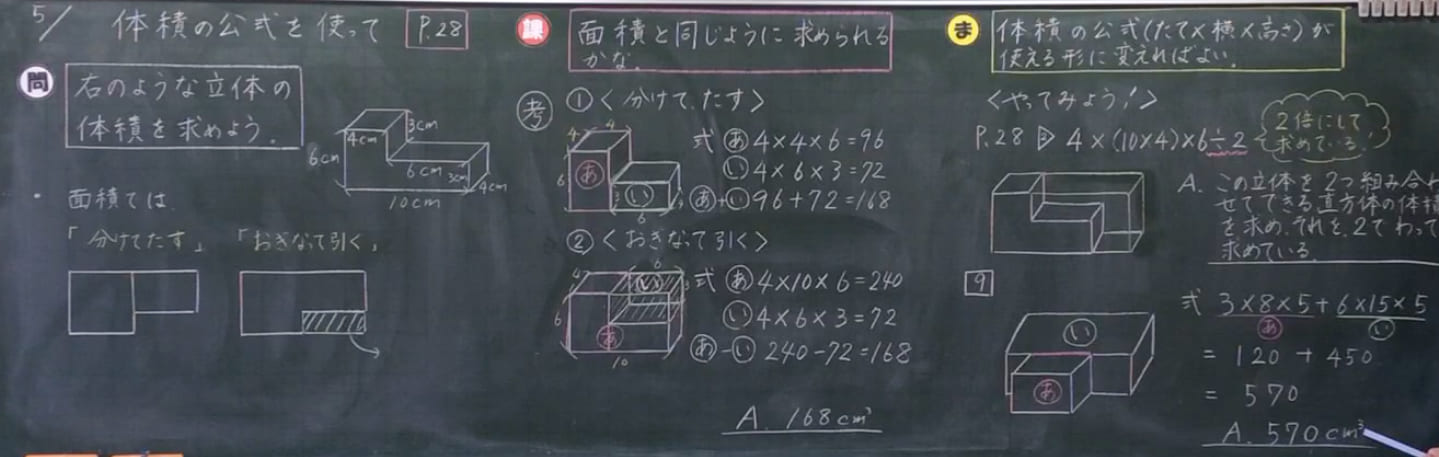 5/ 体積の公式を使って P.28
問 右のような立体の
体積を求めよう。
3cm
4cm
6cm
6cm
3cm
4cm
10cm
・面積では
「分けてたす」「おぎなって引く」
課 面積と同じように求められる
かな。
考 ①<分けて、たす>
4
4
6
あ
い
3
6
式 あ4×4×6=96
い4×6×3=72
あ+い96+72=168
②<おぎなって引く>
6
4
い
3
6
あ
10
式 あ4×10×6=240
い4×6×3=72
あ-い 240-72=168
A. 168cm³
ま 体積の公式(たて×横×高さ)が
使える形に変えればよい。
<やってみよう!>
P.28 4×(10×4)×6÷2
2倍にして
求めている。
A. この立体を2つ組み合わ
せてできる直方体の体積
を求め、それを、2でわって
求めている。
9
い
あ
式 3×8×5+6×15×5
あ い
= 120 + 450
= 570
A. 570cm³